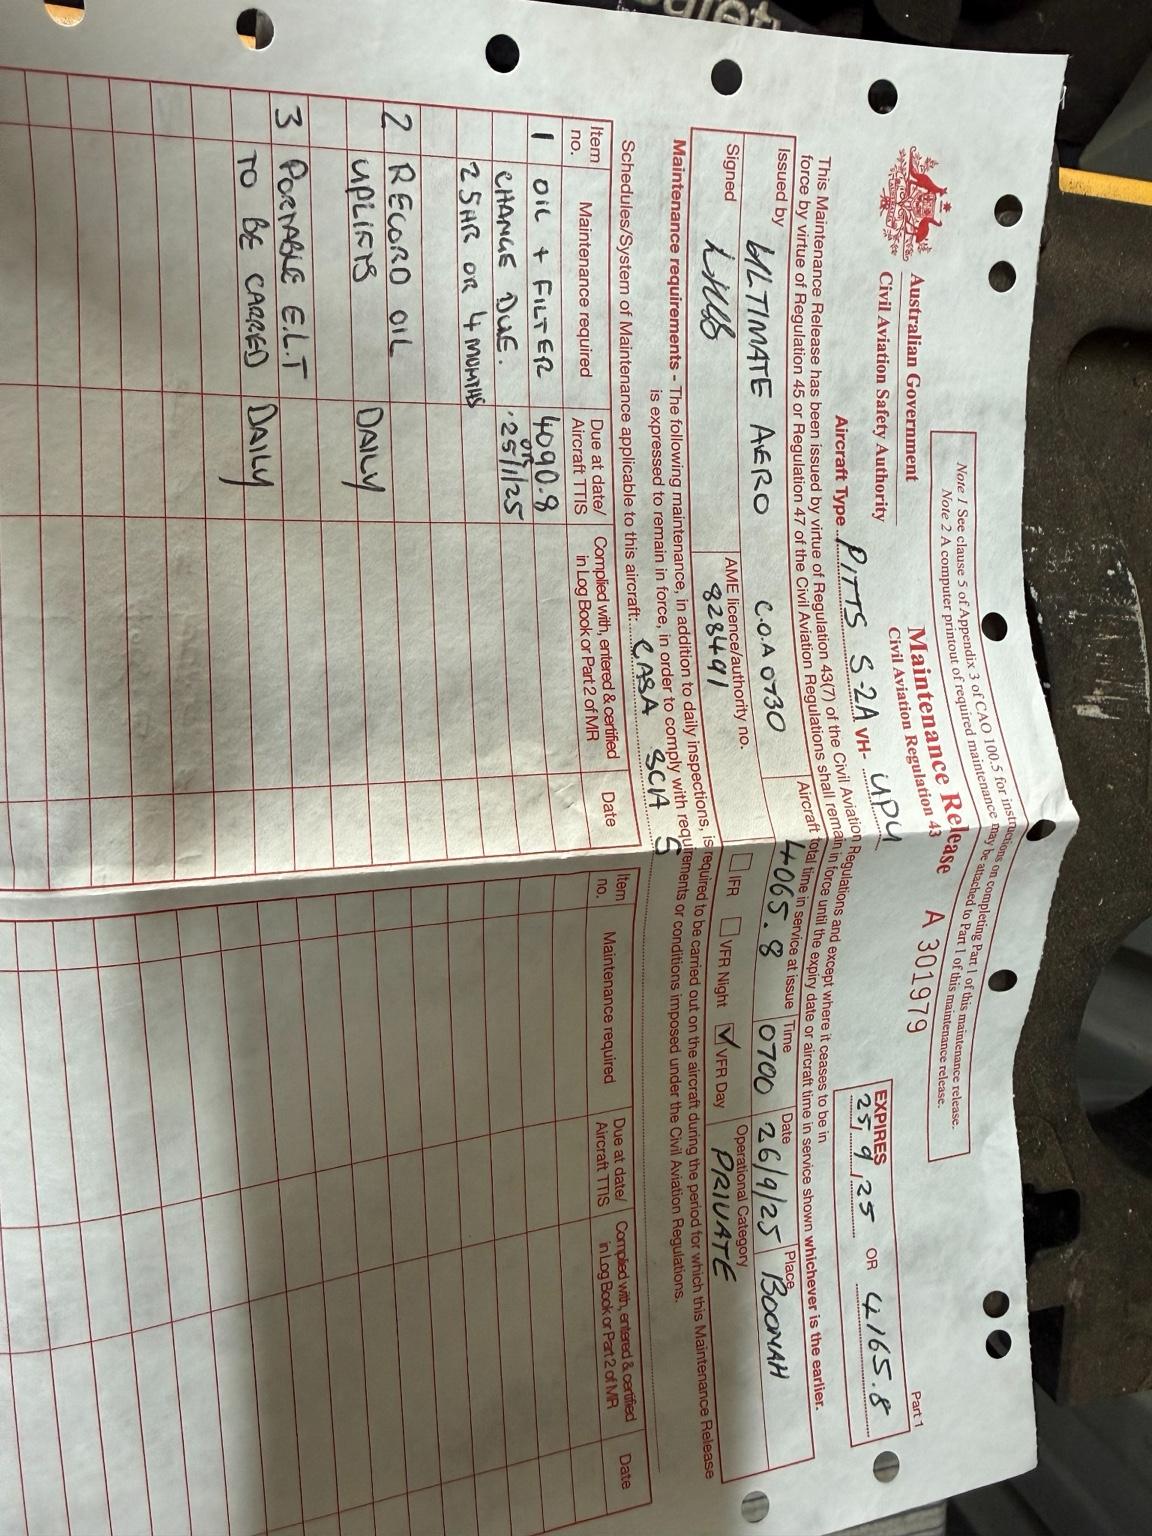 Note 1 See clause 5 of Appendix 3 of CAO 100.5 for instructions on completing Part 1 of this maintenance release.
Note 2 A computer printout of required maintenance may be attached to Part 1 of this maintenance release.
Part 1
Australian Government
Civil Aviation Safety Authority
Maintenance Release
Civil Aviation Regulation 43
A 301979
EXPIRES
25, 9, 25 OR 4165.8
Aircraft Type PITTS S-2A VH- UPU
This Maintenance Release has been issued by virtue of Regulation 43(7) of the Civil Aviation Regulations and except where it ceases to be in
force by virtue of Regulation 45 or Regulation 47 of the Civil Aviation Regulations shall remain in force until the expiry date or aircraft time in service shown whichever is the earlier.
Issued by
ULTIMATE AERO C.O.A 0730
Aircraft total time in service at issue
4065.8
Time
0700
Date
26/9/25
Place
BOONAH
Signed
AME licence/authority no.
828491
IFR VFR Night ✓ VFR Day
Operational Category
PRIVATE
Maintenance requirements - The following maintenance, in addition to daily inspections, is required to be carried out on the aircraft during the period for which this Maintenance Release
is expressed to remain in force, in order to comply with requirements or conditions imposed under the Civil Aviation Regulations.
Schedules/System of Maintenance applicable to this aircraft: CASA SCH 5
Item no. Maintenance required Due at date/ Aircraft TTIS Complied with, entered & certified in Log Book or Part 2 of MR Date
Item no. Maintenance required Due at date/ Aircraft TTIS Complied with, entered & certified in Log Book or Part 2 of MR Date
1 OIL + FILTER 4090.8
CHANGE DUE. OR 25/1/25
25HR OR 4 MONTHS
2 RECORD OIL
UPLIFTS DAILY
3 PORTABLE E.L.T
TO BE CARRED DAILY